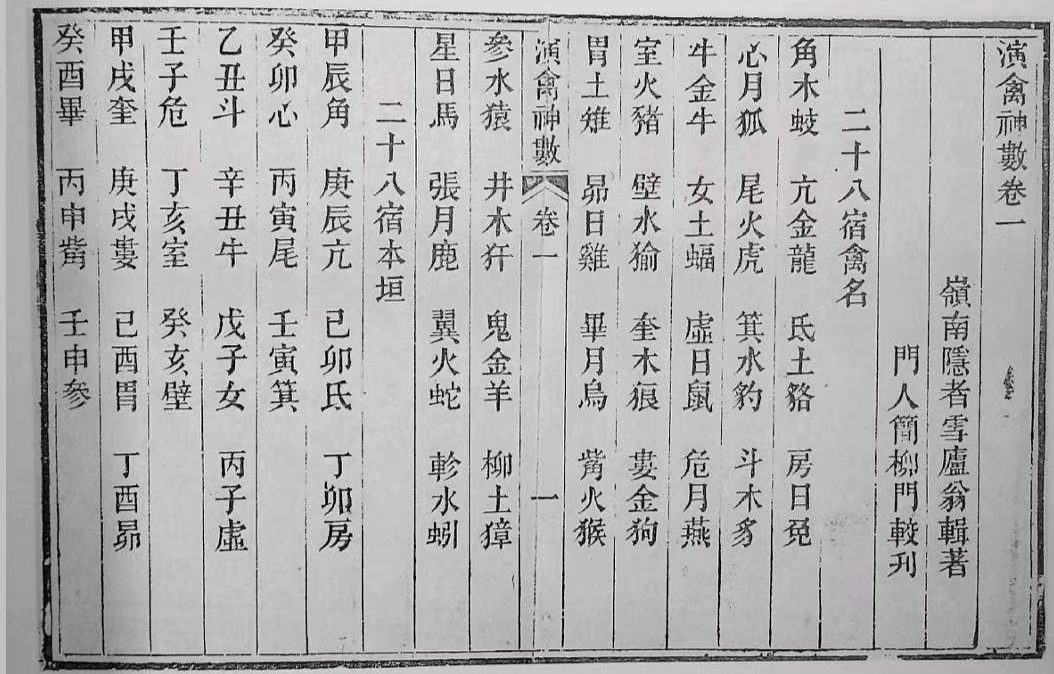 演禽神數卷一
嶺南隱者雪廬翁輯著
門人簡柳門較刋
二十八宿禽名
角木蛟 亢金龍 氐土貉 房日兎
心月狐 尾火虎 箕水豹 斗木豸
牛金牛 女土蝠 虛日鼠 危月燕
室火豬 壁水㺄 奎木狼 婁金狗
胃土雉 昴日雞 畢月烏 觜火猴
演禽神數 卷一 一
參水猿 井木犴 鬼金羊 柳土獐
星日馬 張月鹿 翼火蛇 軫水蚓
二十八宿本垣
甲辰角 庚辰亢 己卯氐 丁卯房
癸卯心 丙寅尾 壬寅箕
乙丑斗 辛丑牛 戊子女 丙子虛
壬子危 丁亥室 癸亥壁
甲戌奎 庚戌婁 己酉胃 丁酉昴
癸酉畢 丙申觜 壬申參